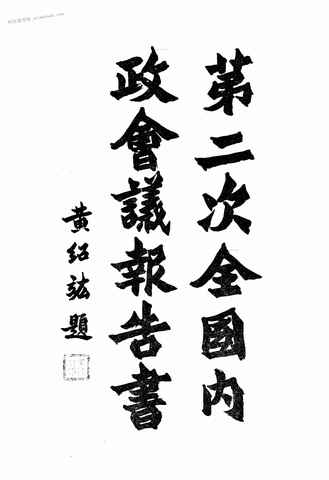 第二次全國内
政會議報告書
黃紹竑題